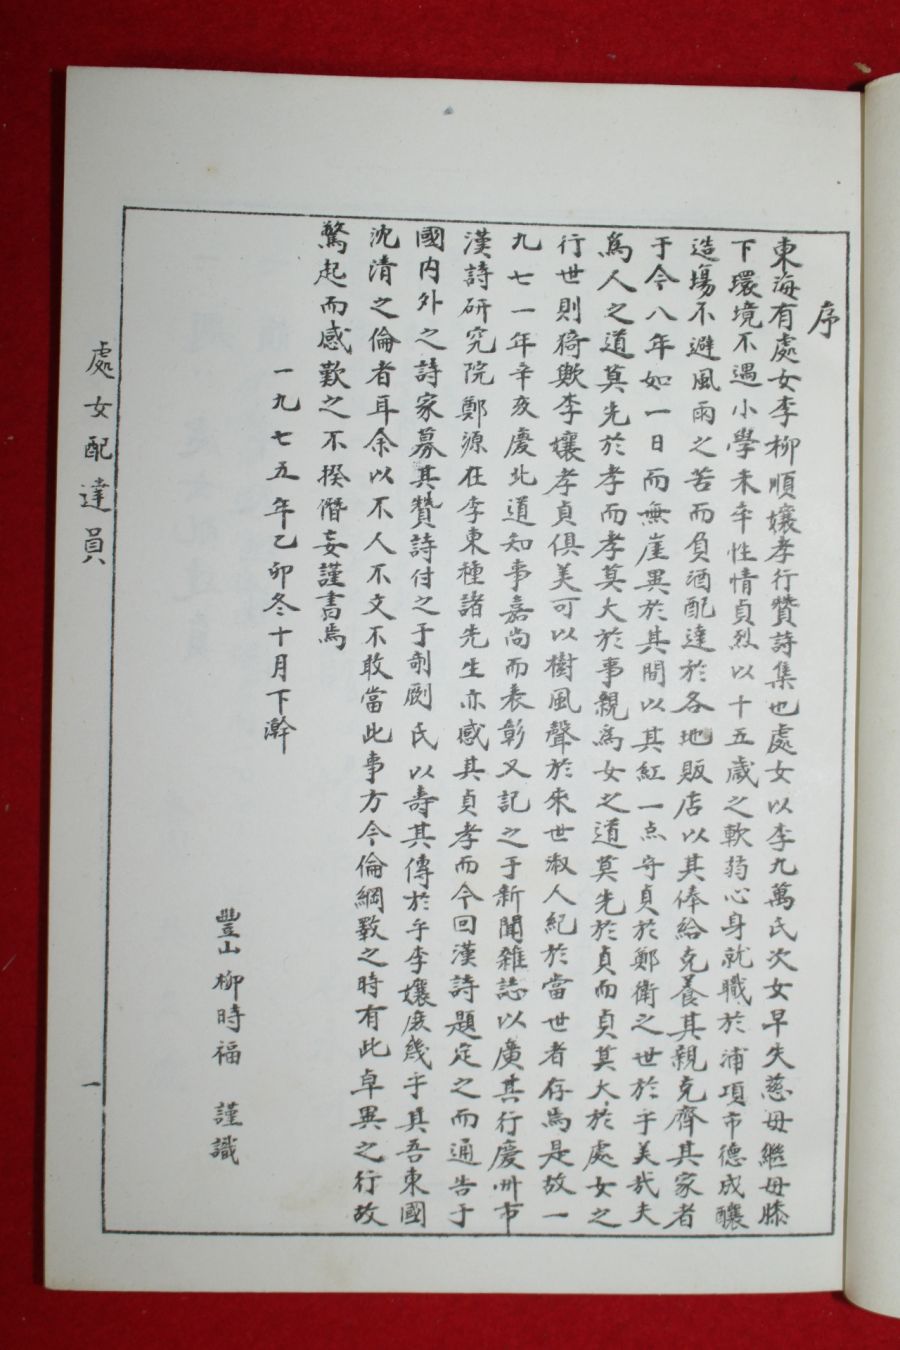 序
東海有處女李柳順孃孝行贊詩集也處女以李九萬氏次女早失慈母繼母膝
下環境不遇小學未卒性情貞烈以十五歲之軟弱心身就職於浦項市德成釀
造場不避風雨之苦而負酒配達於各地販店以其俸給克養其親克齊其家者
于今八年如一日而無崖異於其間以其紅一点守貞於鄭衛之世於乎美哉夫
爲人之道莫先於孝而孝莫大於事親爲女之道莫先於貞而貞莫大於處女之
行世則猗歟李孃孝貞俱美可以樹風聲於來世淑人紀於當世者存焉是故一
九七一年辛亥慶北道知事嘉尚而表彰又記之于新聞雜誌以廣其行慶州市
漢詩研究院鄭源在李東種諸先生亦感其貞孝而今回漢詩題定之而通告于
國內外之詩家募其贊詩付之于剞劂氏以壽其傳於乎李孃庶幾乎其吾東國
沈清之倫者耳余以不人不文不敢當此事方今倫綱斁之時有此卓異之行故
驚起而感歎之不揆僭妄謹書焉
一九七五年乙卯冬十月下澣
豐山柳時福 謹識
處女配達員
一